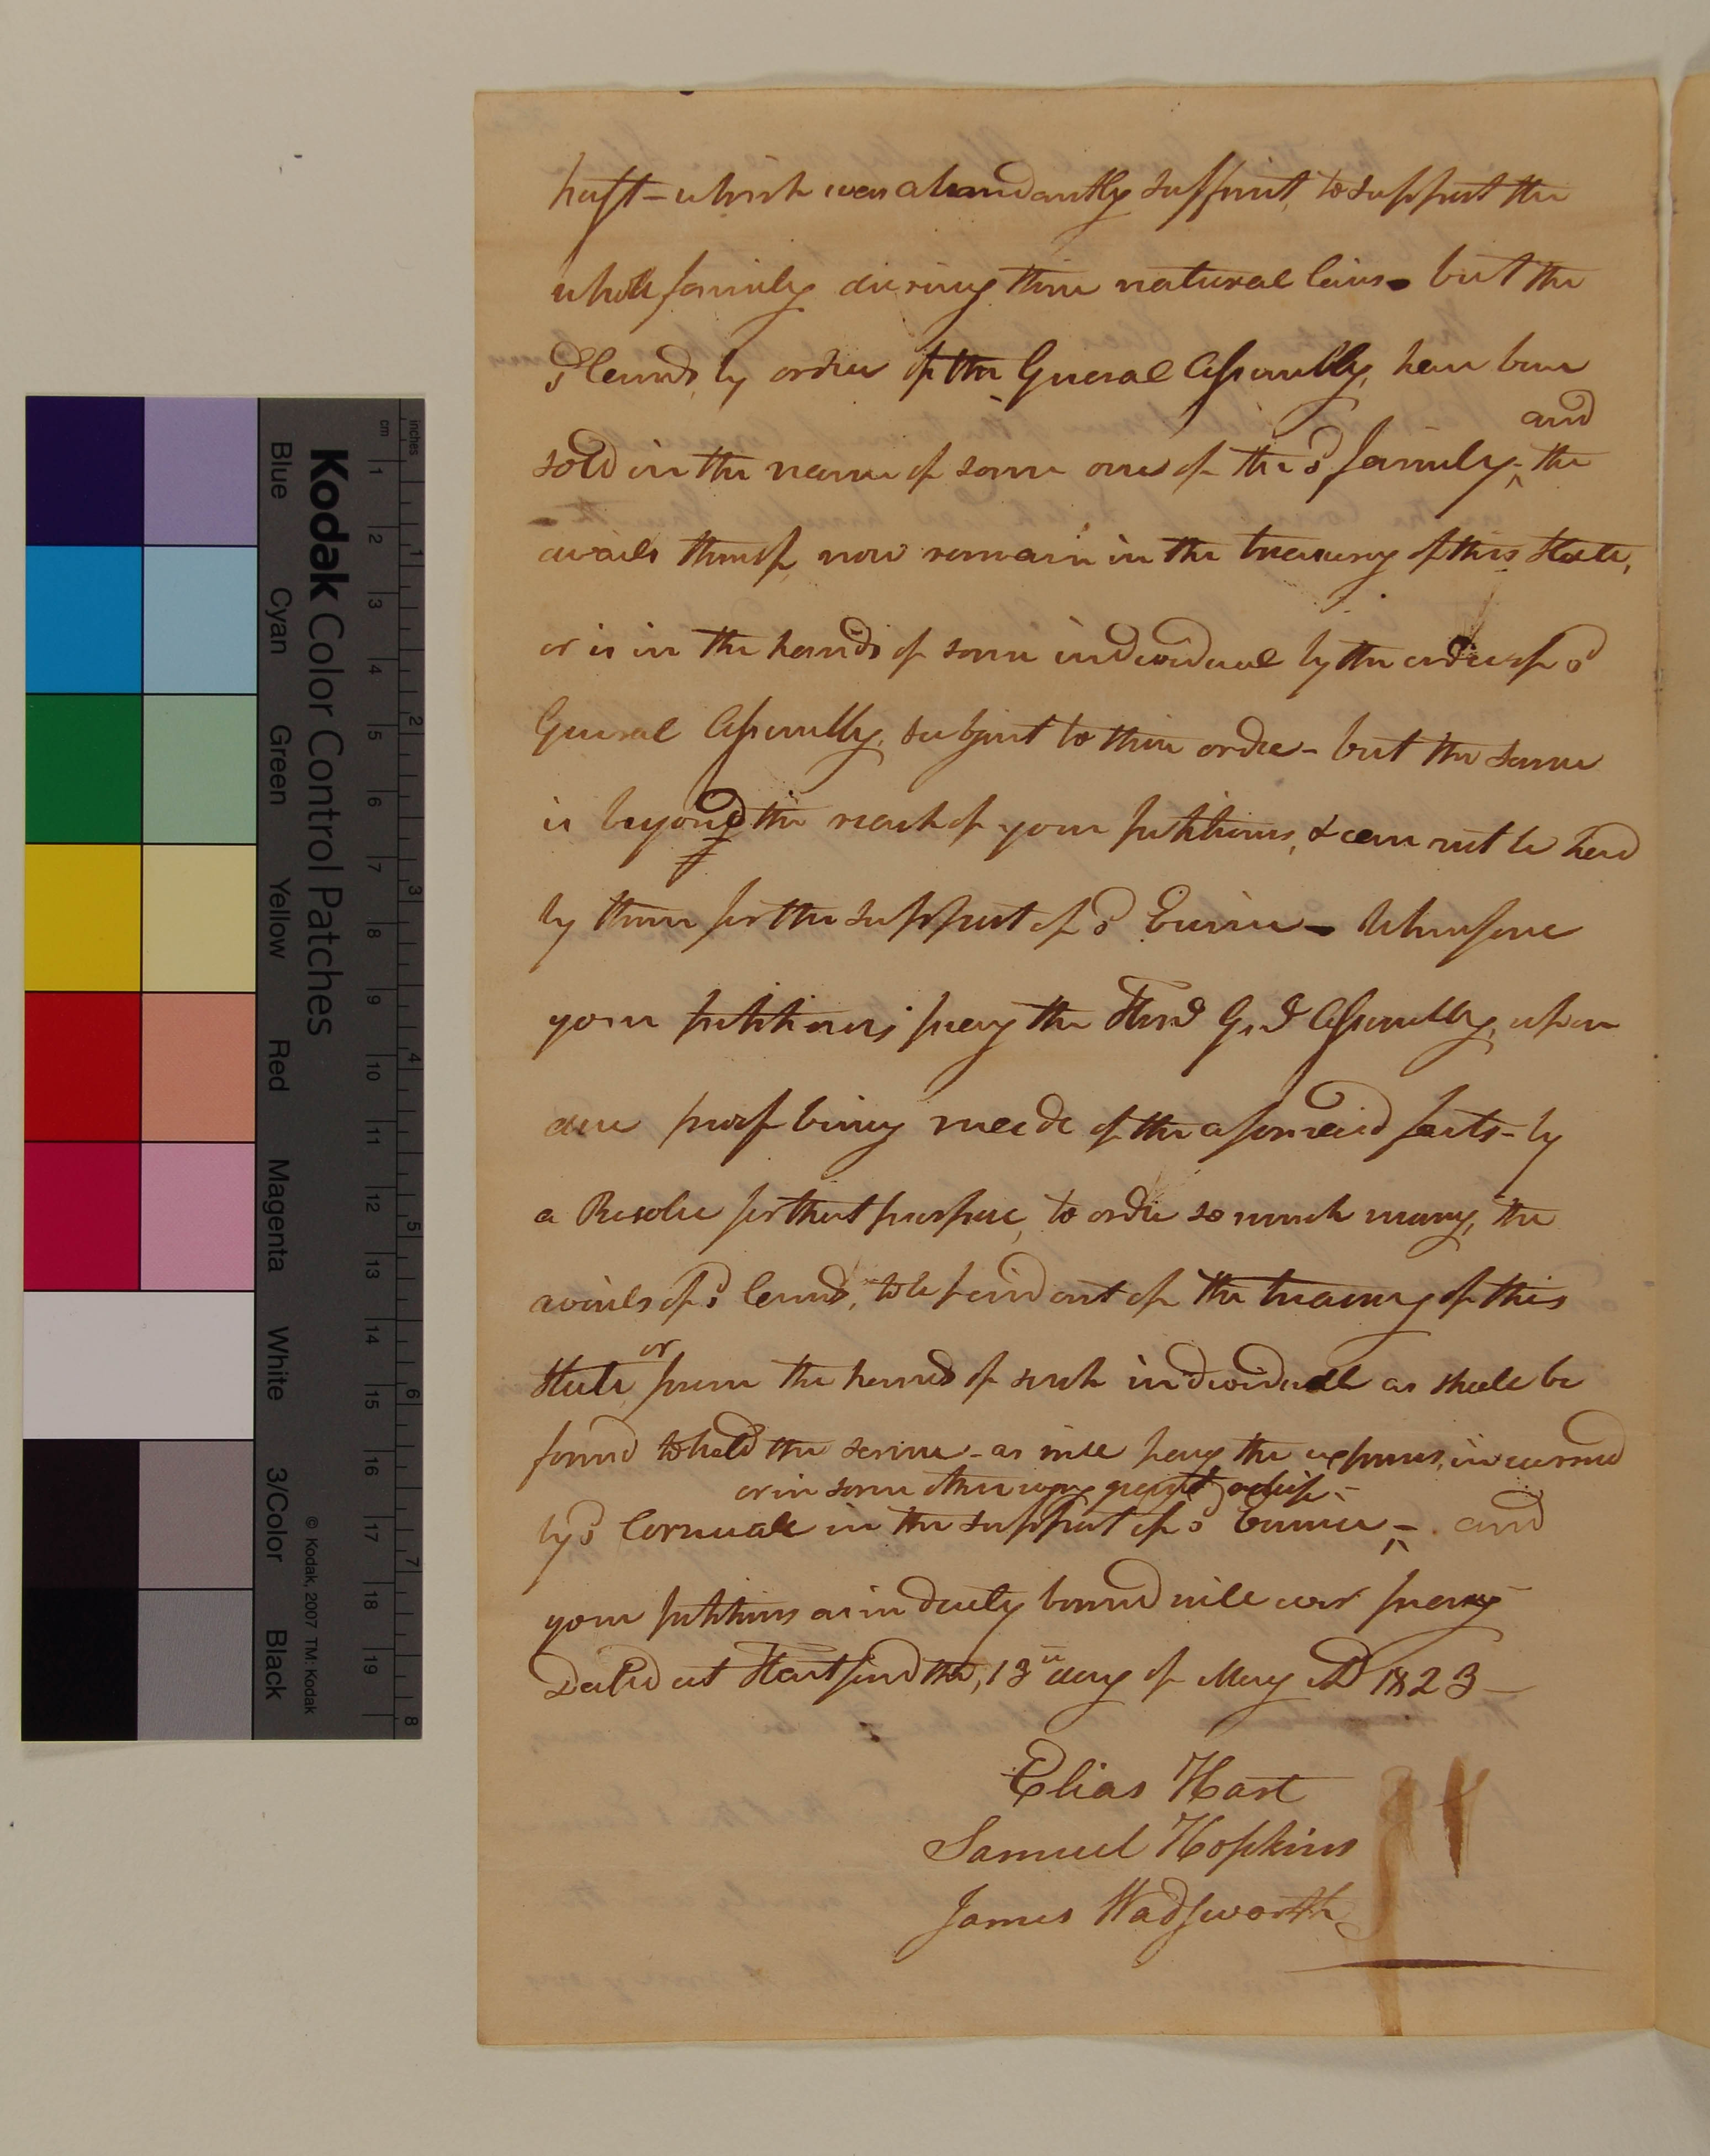 haft – which was abundantly suffint, to support the
whole family during their natural lives – but the
sd lands, by order of the General Assembly, have been
and
sold in the name of some ones of the sd family – the
avails thereof, now remain in the treasury of this State,
or is in the hands of some individual by the order of sd
General Assembly, subject to their order – but the same
is beyond the reach of your petitioners, & can not be had
by them for the support of sd Eunice – Wherefore
your petitioners pray the Hond G. d Assembly, upon
due proof being made of the aforesaid facts – by
a Resolve for that purpose, to order so much money, the
avails of sd lands, to be paid out of the treasury of this
or
State, from the hands of such individuall as shall be
found to hold the same – as will pay the expenses, incurred
or in some other way grant relief –
by sd Cornwall in the support of sd Eunice – and
your petitioners as in duty bound will ever pray –
Dated at Hartford the, 13th day of May AD 1823 –
Elias Hart
Samuel Hopkins
James Wadsworth
Kodak Color Control Patches
Blue Cyan Green Yellow Red Magenta White 3/Color Black
© Kodak, 2007 TM: Kodak
inches 1 2 3 4 5 6 7 8
cm 1 2 3 4 5 6 7 8 9 10 11 12 13 14 15 16 17 18 19